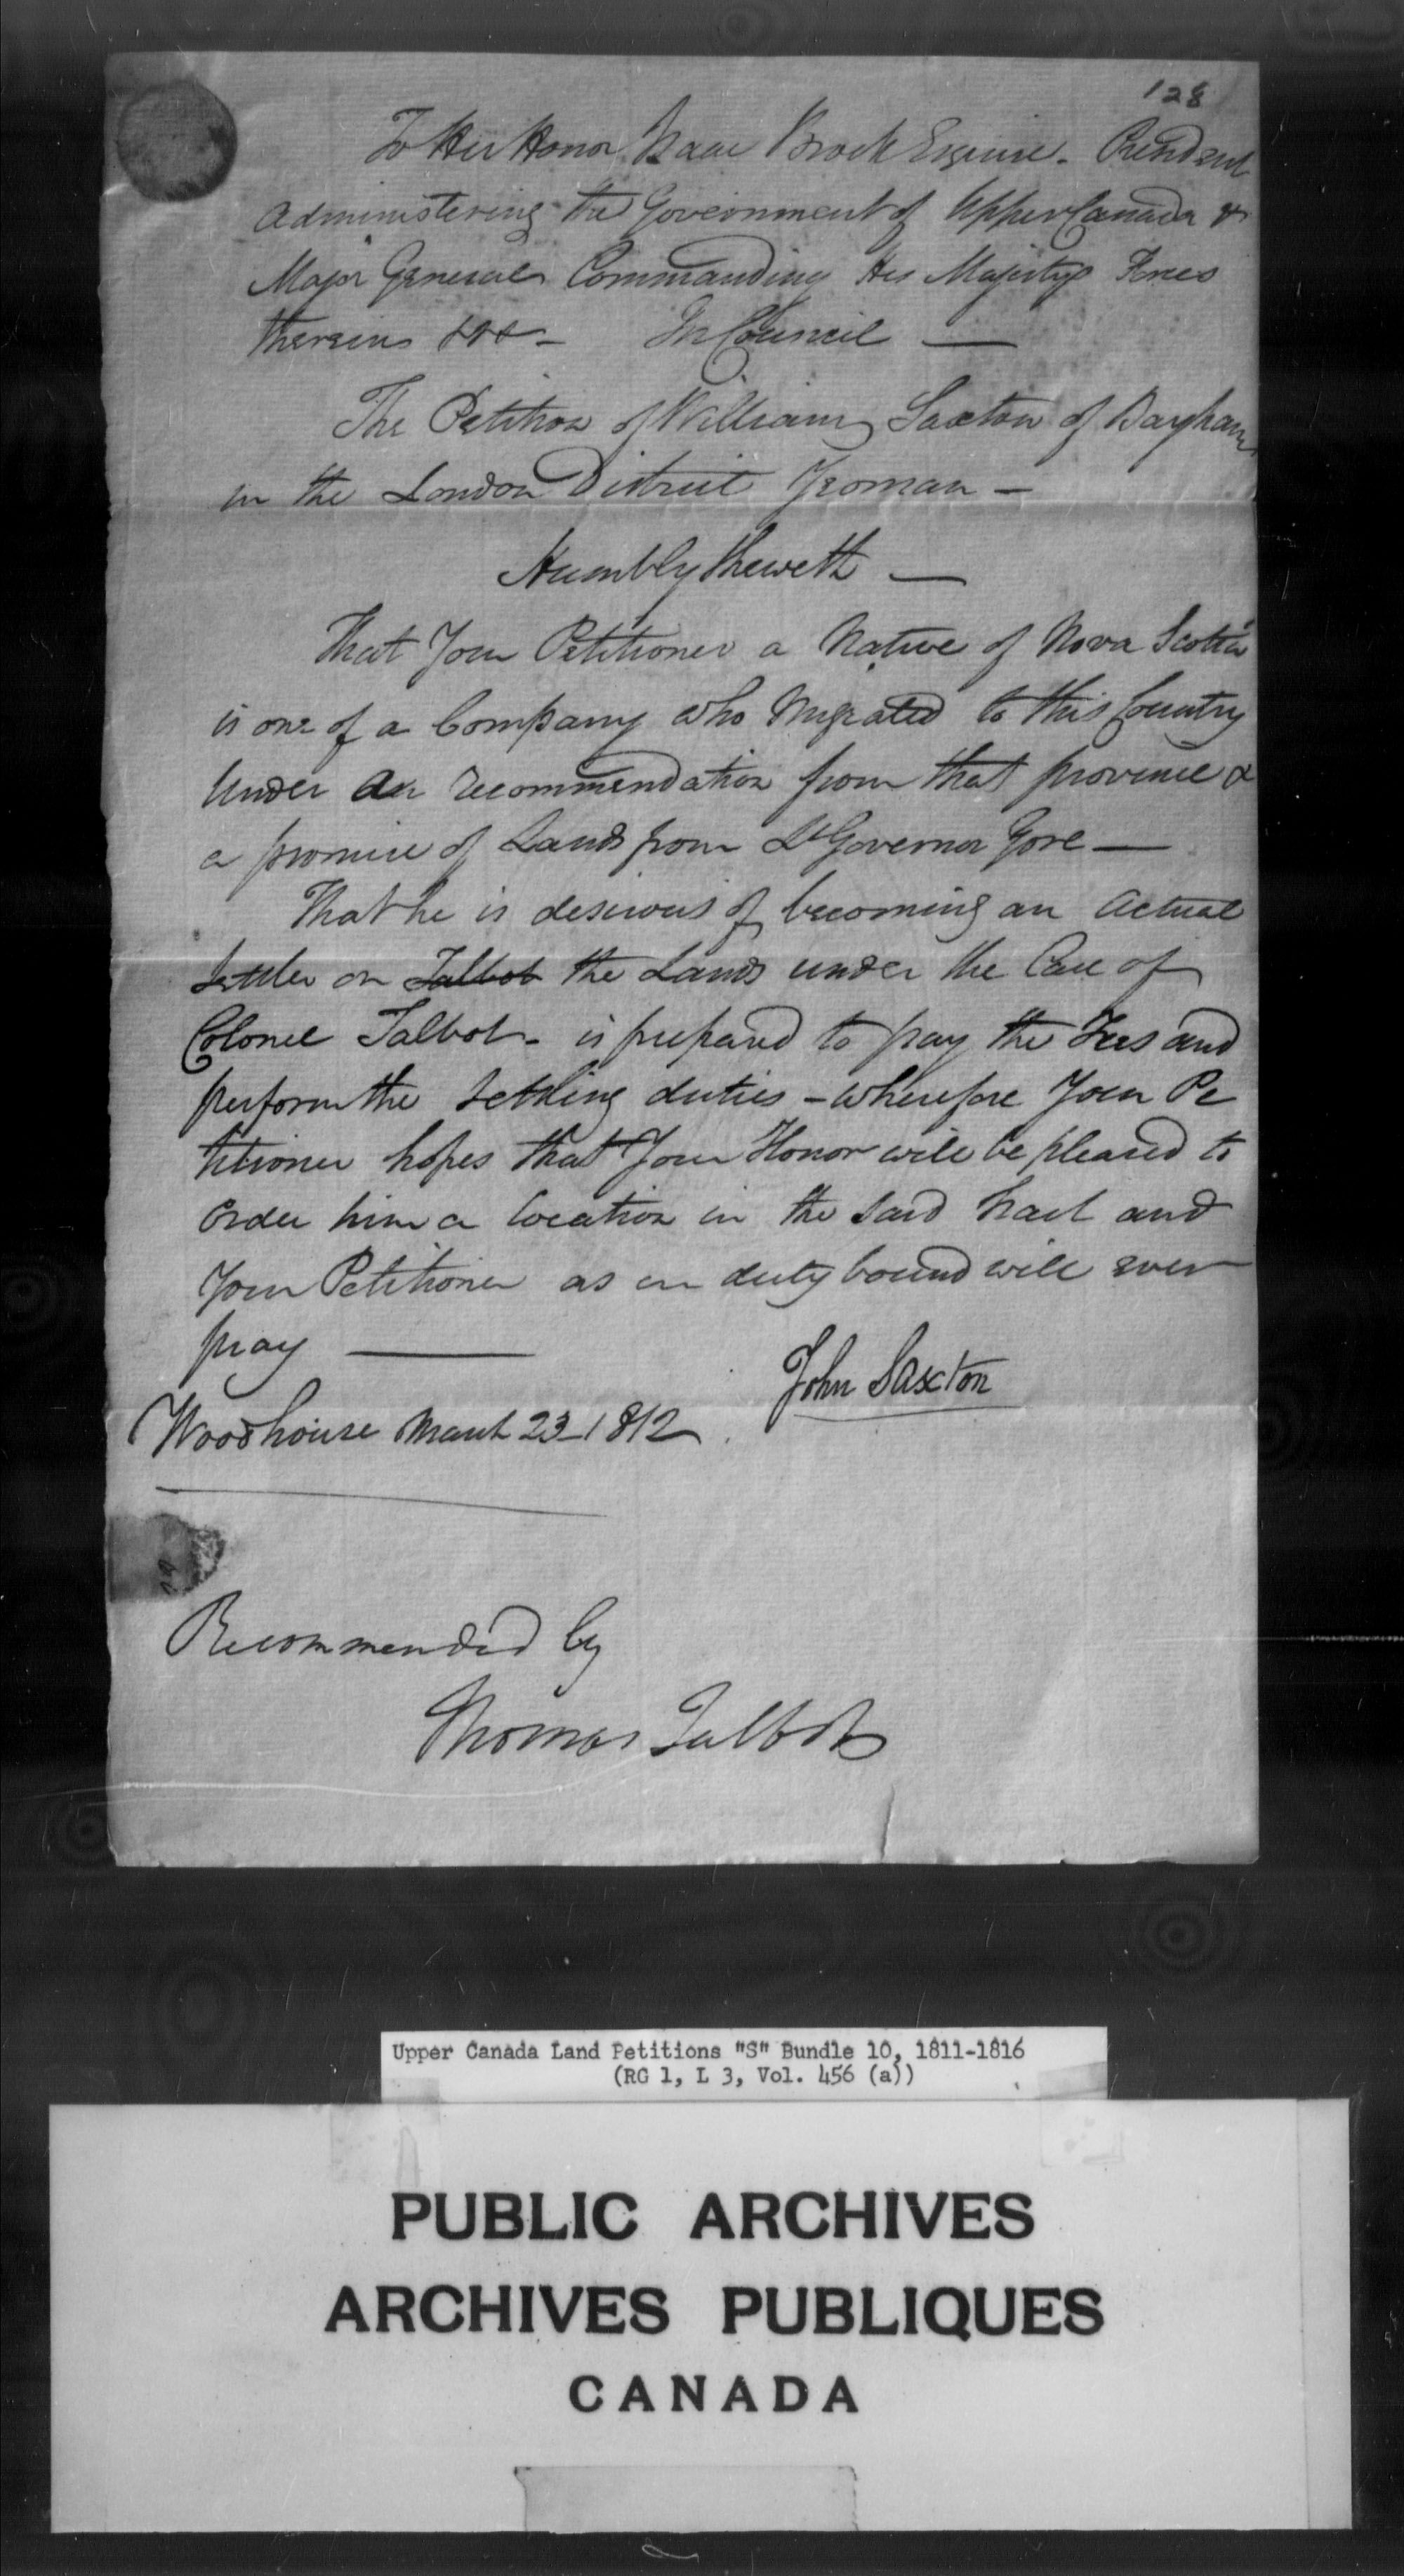 128
To His Honor Isaac Brock Esquire - President
Administering the Government of Upper Canada &
Major General Commanding His Majestys Forces
therein &&& - In Council —
The Petition of William Saxton of Bayham
in the London District Yeoman -
Humbly Sheweth —
That Your Petitioner a Native of Nova Scotia
is one of a Company who Migrated to this Country
Under an recommendation from that province &
a promise of Lands from Lt Governor Gore —
That he is desirous of becoming an Actual
Settler on Talbot the Lands under the Care of
Colonel Talbot - is prepared to pay the Fees and
perform the Settling duties - wherefore Your Pe
titioner hopes that Your Honor will be pleased to
Order him a location in the said tract and
Your Petitioner as in duty bound will ever
pray —
John Saxton
Woodhouse March 23 - 1812
Recommended by
Thomas Talbot
Upper Canada Land Petitions "S" Bundle 10, 1811-1816
(RG 1, L 3, Vol. 456 (a))
PUBLIC ARCHIVES
ARCHIVES PUBLIQUES
CANADA